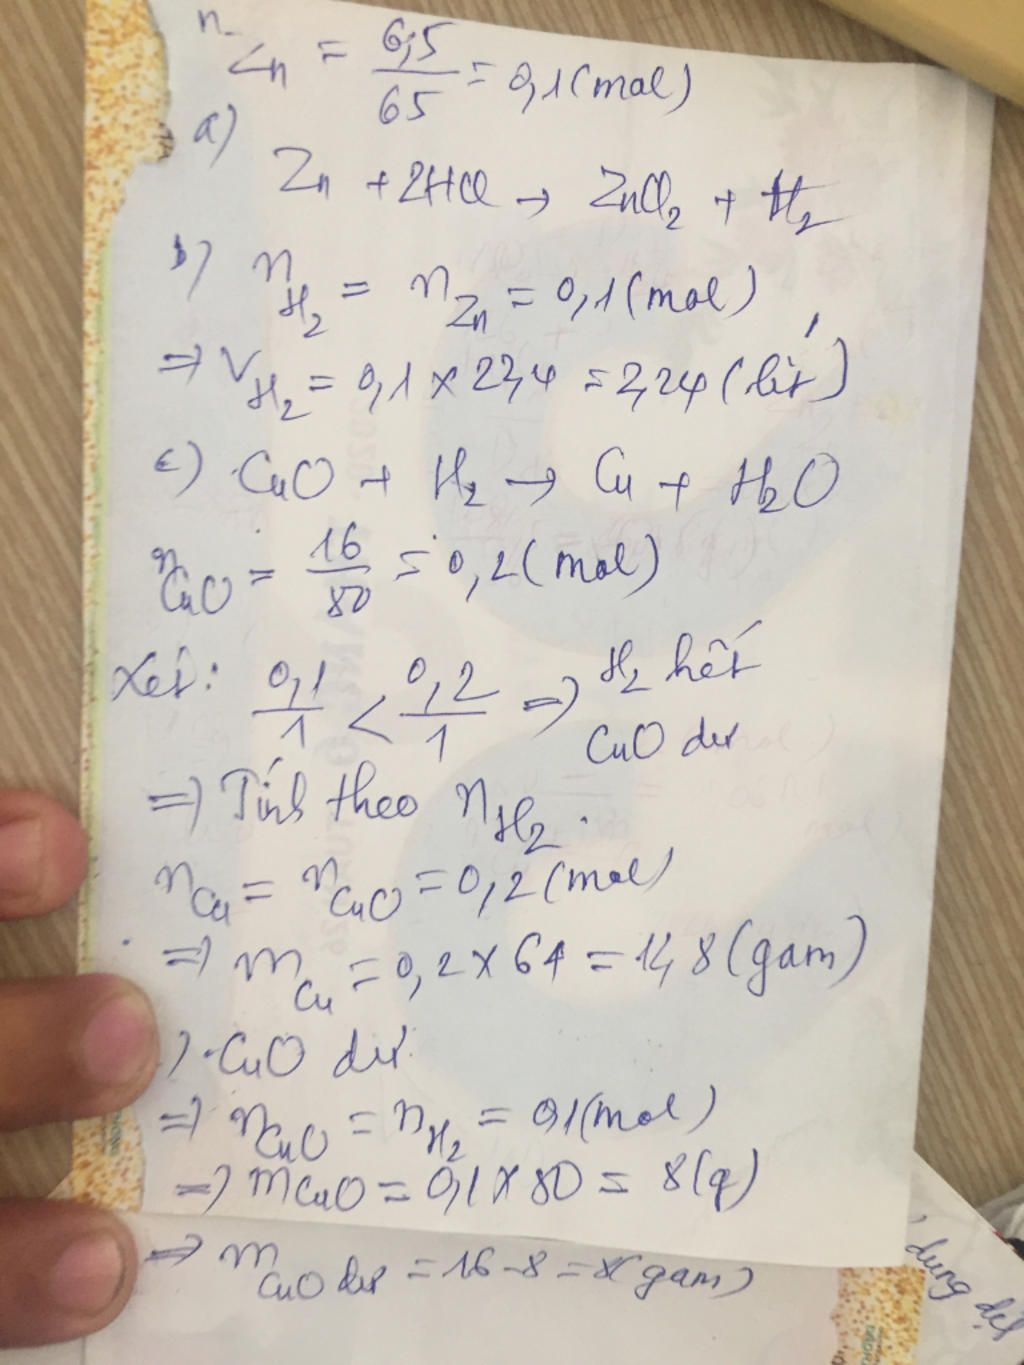 n Zn = 6,5/65 = 0,1 (mol)
a)
Zn + 2HCl → ZnCl2 + H2
b) nH2 = nZn = 0,1 (mol)
⇒ VH2 = 0,1 × 22,4 = 2,24 (lít)
c) CuO + H2 → Cu + H2O
nCuO = 16/80 = 0,2 (mol)
Xét: 0,1/1 < 0,2/1 ⇒ H2 hết
CuO dư
⇒ Tính theo nH2.
nCu = nCuO = 0,2 (mol)
⇒ mCu = 0,2 × 64 = 14,8 (gam)
) CuO dư
⇒ nCuO = nH2 = 0,1 (mol)
⇒ mCuO = 0,1 × 80 = 8 (g)
⇒ mCuO dư = 16 - 8 = 8 (gam)
dung dịch